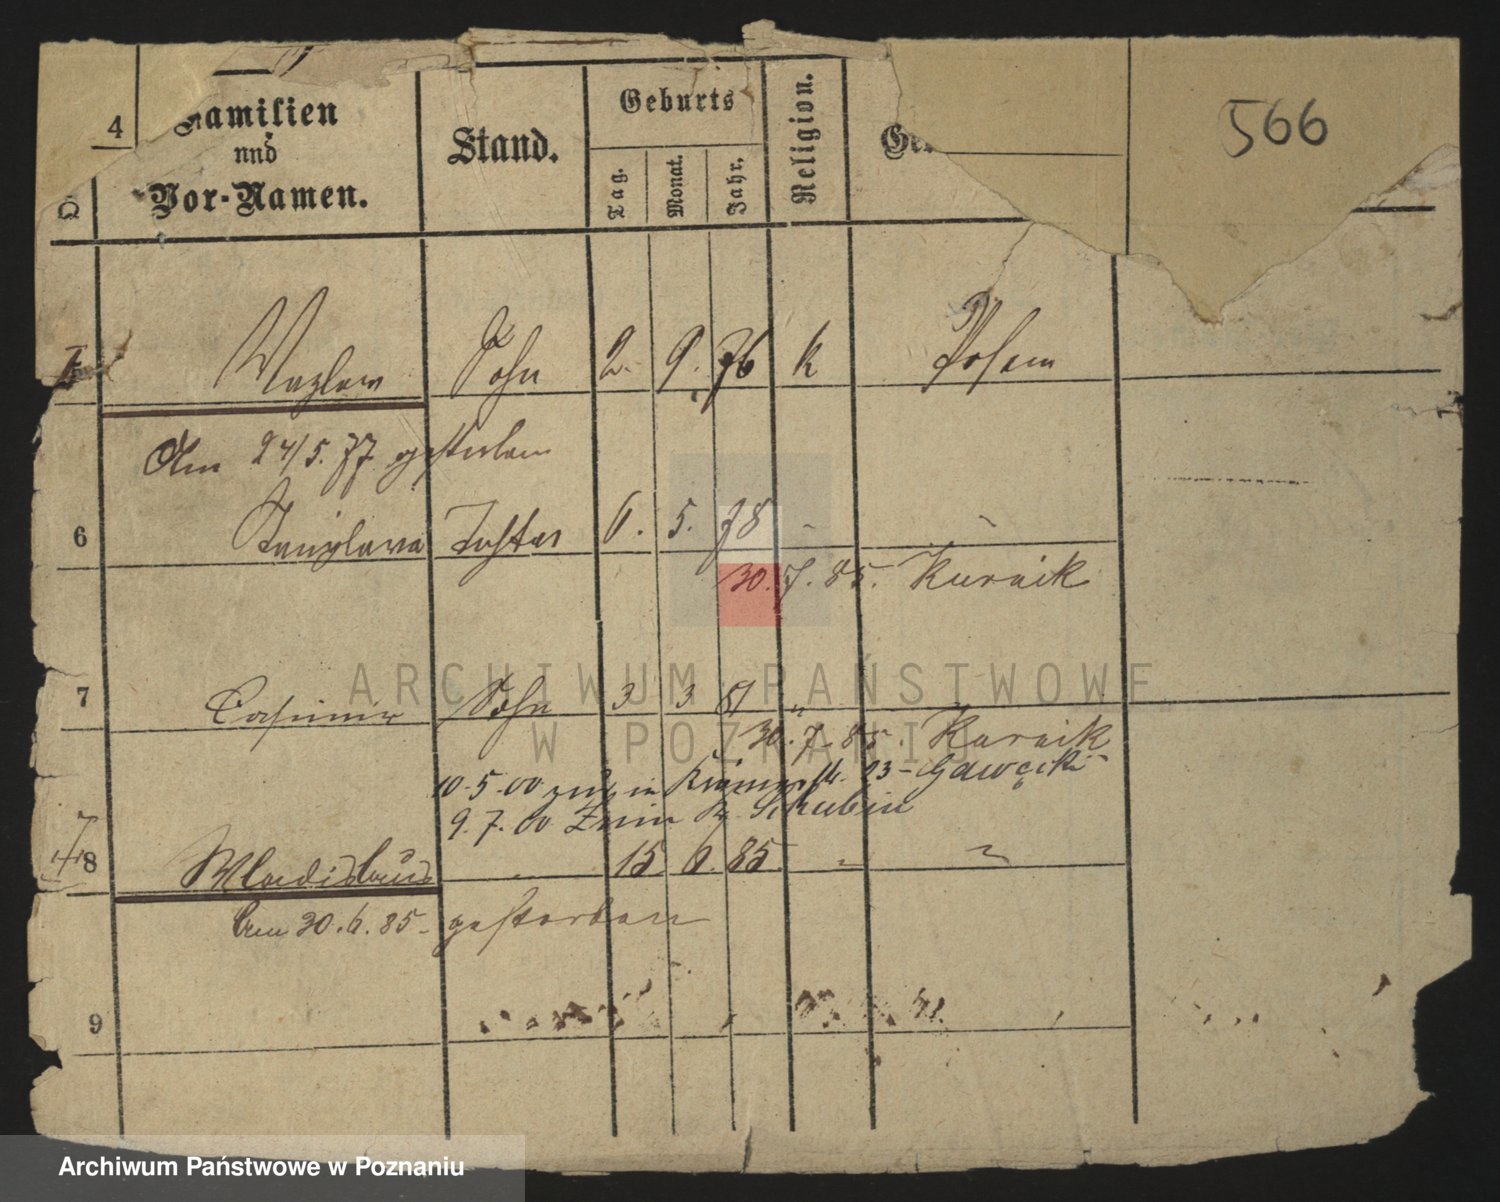 4
566
Familien
und
Vor-Namen.
Stand.
Geburts
Tag.
Monat.
Jahr.
Religion.
Ge
5 Wazlaw Sohn 2. 9. 76 k Posen
Am 24/5. 77 gestorben
6 Stanislawa Tochter 6. 5. 78 - -
30. 7. 85. Kurnik
7 Casimir Sohn 3 3 81 "
30. 7. 85. Kurnik
10.5.00 in 23
9. 7. 00 Znin Schubin
8 Wladislaus 15 6. 85 - -
Am 30. 6. 85 - gestorben
9
ARCHIWUM PAŃSTWOWE
W POZNANIU
Archiwum Państwowe w Poznaniu